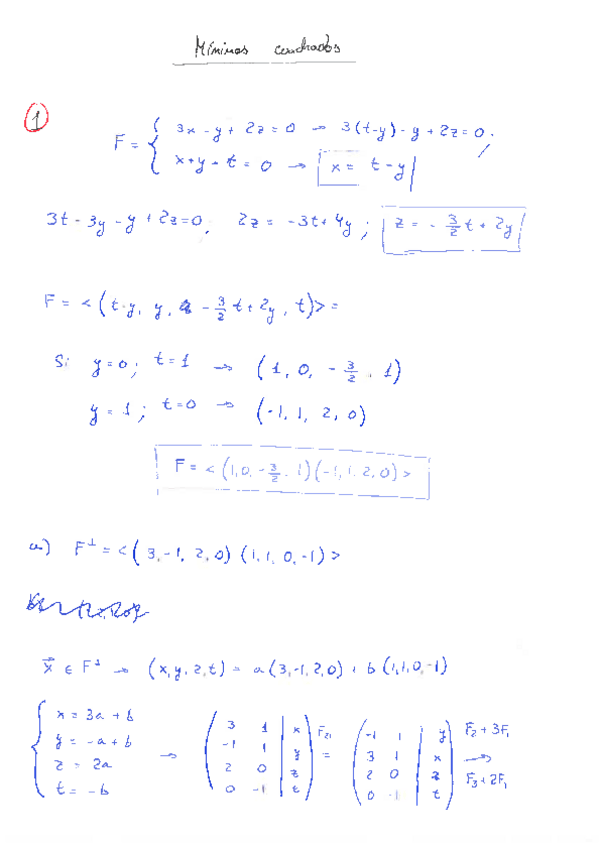 Mínimos cuadrados
1
F = { 3x - y + 2z = 0 → 3(t-y) - y + 2z = 0;
x + y - t = 0 → x = t - y
3t - 3y - y + 2z = 0; 2z = -3t + 4y; z = - 3/2 t + 2y
F = < (t-y, y, - 3/2 t + 2y, t) > =
Si y = 0; t = 1 → (1, 0, - 3/2, 1)
y = 1; t = 0 → (-1, 1, 2, 0)
F = < (1, 0, - 3/2, 1) (-1, 1, 2, 0) >
a) F⊥ = < (3, -1, 2, 0) (1, 1, 0, -1) >
x⃗ ∈ F⊥ → (x, y, z, t) = a(3, -1, 2, 0) + b(1, 1, 0, -1)
{ x = 3a + b
y = -a + b
z = 2a
t = -b
→ ( 3 1 | x
-1 1 | y
2 0 | z
0 -1 | t ) F21 =
( -1 1 | y
3 1 | x
2 0 | z
0 -1 | t )
F2 + 3F1
→
F3 + 2F1